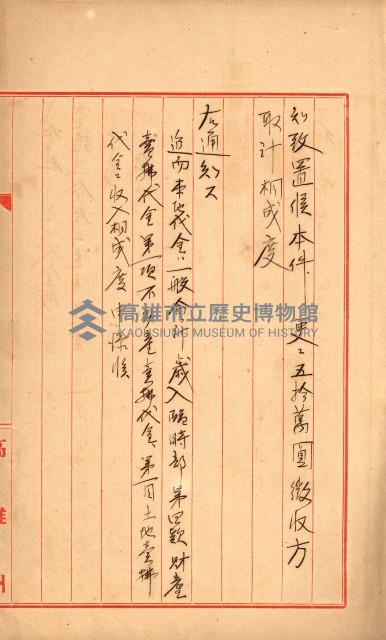 知致置候本件ノ更ニ五拾萬圓徴收方
取計相成度
右通知ス
追而本地代金ハ一般会計歳入臨時部第四款財産
賣拂代金第一項不動産賣拂代金、第一目土地賣拂
代金ニ收入相成度申添候
高雄市立歷史博物館
KAOHSIUNG MUSEUM OF HISTORY
高雄州